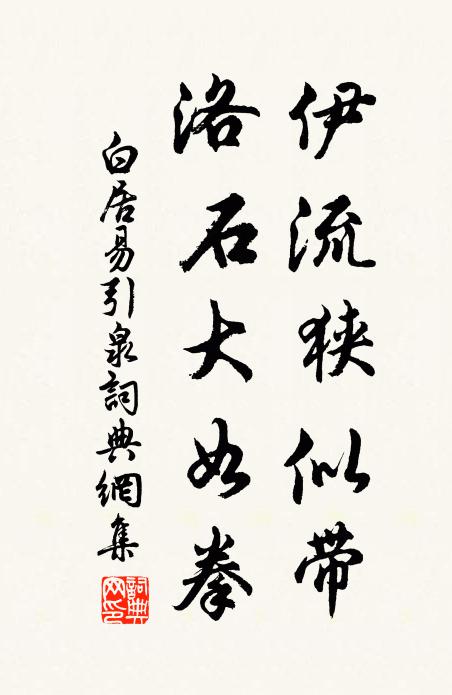 伊流狭似带
洛石大如拳
白居易引泉詞典網集
詞典網印